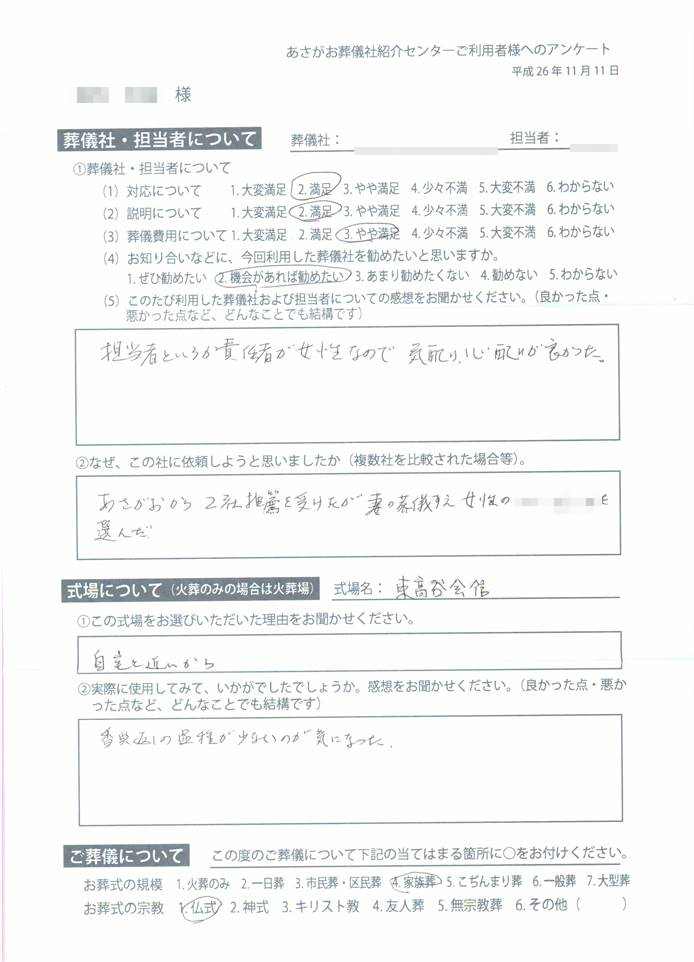 あさがお葬儀社紹介センターご利用者様へのアンケート
平成26年11月11日
様
葬儀社・担当者について 葬儀社： 担当者：
①葬儀社・担当者について
(1) 対応について 1.大変満足 2.満足 3.やや満足 4.少々不満 5.大変不満 6.わからない
(2) 説明について 1.大変満足 2.満足 3.やや満足 4.少々不満 5.大変不満 6.わからない
(3) 葬儀費用について 1.大変満足 2.満足 3.やや満足 4.少々不満 5.大変不満 6.わからない
(4) お知り合いなどに、今回利用した葬儀社を勧めたいと思いますか。
1.ぜひ勧めたい 2.機会があれば勧めたい 3.あまり勧めたくない 4.勧めない 5.わからない
(5) このたび利用した葬儀社および担当者についての感想をお聞かせください。（良かった点・
悪かった点など、どんなことでも結構です）
担当者というか責任者が女性なので 気配り、心配りが良かった。
②なぜ、この社に依頼しようと思いましたか（複数社を比較された場合等）。
あさがおから2社推薦を受けたが妻の葬儀ゆえ女性の を
選んだ
式場について（火葬のみの場合は火葬場） 式場名： 東高谷会館
①この式場をお選びいただいた理由をお聞かせください。
自宅と近いから
②実際に使用してみて、いかがでしたでしょうか。感想をお聞かせください。（良かった点・悪か
った点など、どんなことでも結構です）
香典返しの種類が少ないのが気になった。
ご葬儀について この度のご葬儀について下記の当てはまる箇所に○をお付けください。
お葬式の規模 1.火葬のみ 2.一日葬 3.市民葬・区民葬 4.家族葬 5.こぢんまり葬 6.一般葬 7.大型葬
お葬式の宗教 1.仏式 2.神式 3.キリスト教 4.友人葬 5.無宗教葬 6.その他（ ）